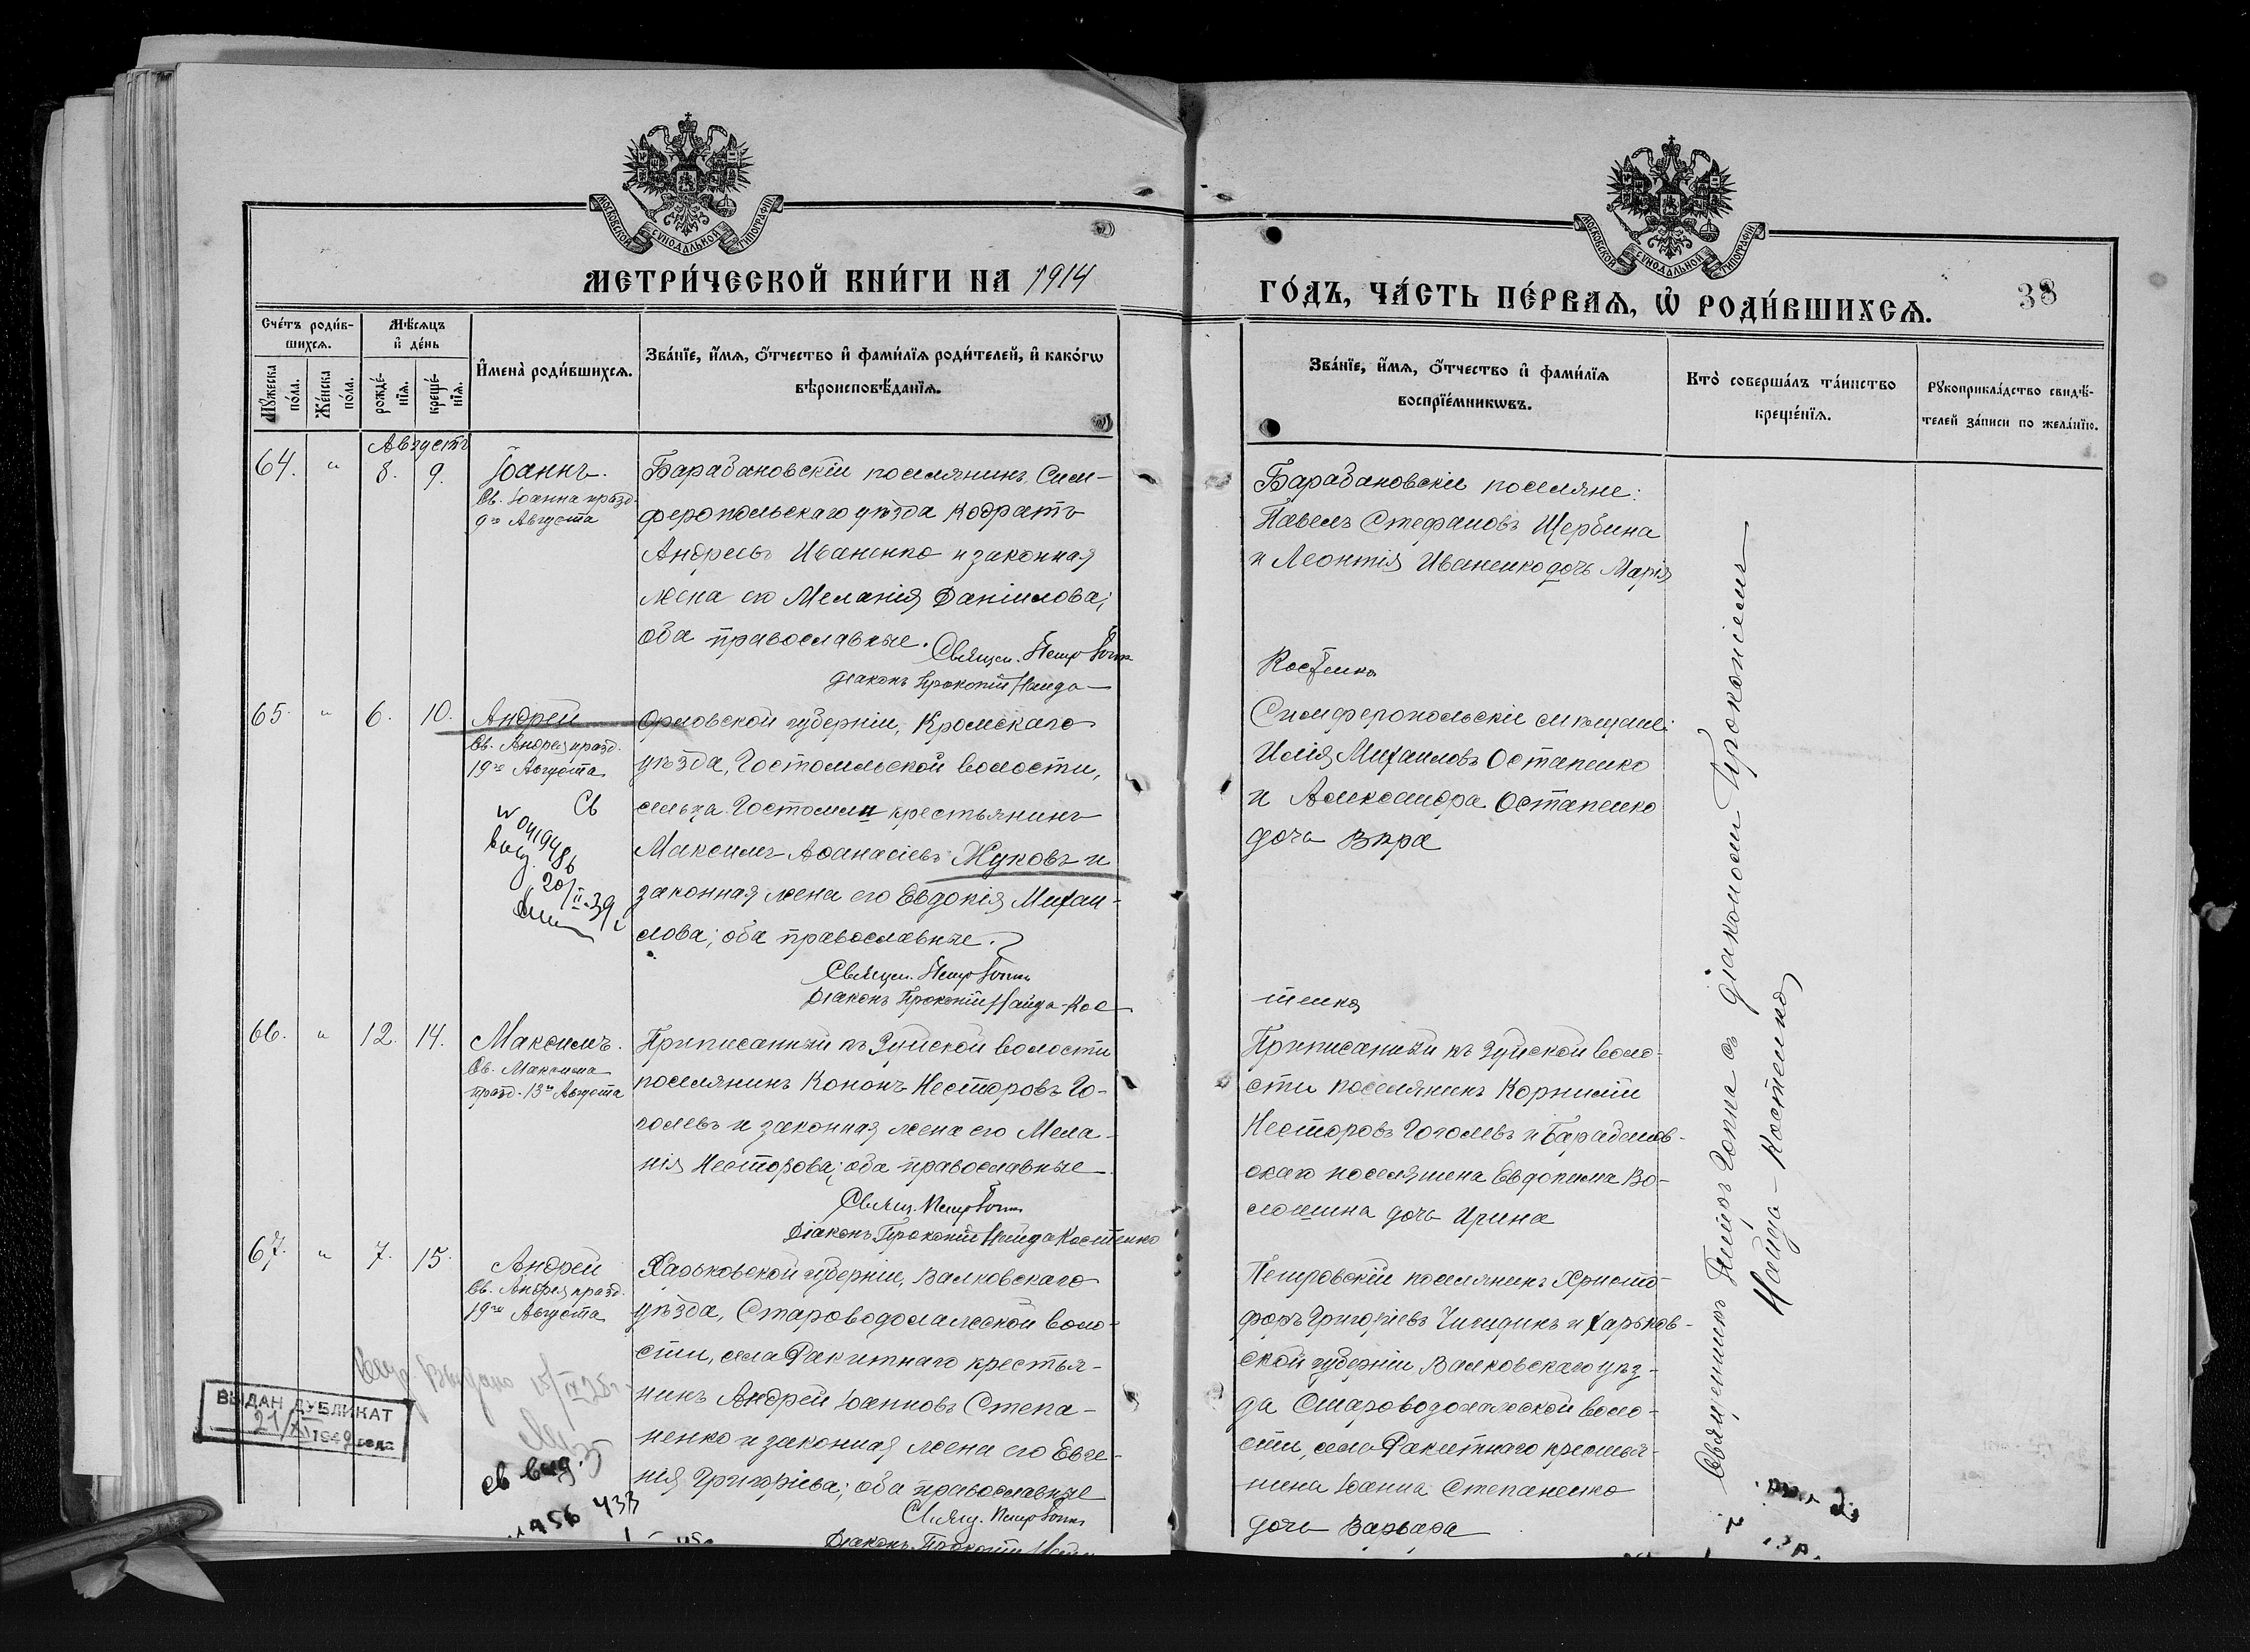 МОСКОВСКОЙ СѴНОДАЛЬНОЙ ТИПОГРАФІИ
МЕТРИ́ЧЕСКОЙ КНИ́ГИ НА 1914
Сче́тъ роди́в-
шихсѧ.
Мѣ́сѧцъ
и҆ де́нь
Мꙋ́жеска
по́ла.
Же́нска
по́ла.
рожде́-
нїѧ.
креще́-
нїѧ.
И҆мена̀ роди́вшихсѧ.
Зва́нїе, и҆́мѧ, ѻ҆́тчество и҆ фами́лїѧ роди́телей, и҆ како́гѡ
вѣроисповѣ́данїѧ.
Августъ
64. " 8. 9. Іоаннъ.
Св. Іоанна празд.
9го Августа
Барабановскій поселянинъ, Сим-
феропольскаго уѣзда Кодратъ
Андреевъ Иваненко и законная
жена его Меланія Даніилова;
оба православные.
Священ. Петр Гопп
Діаконъ Прокопій Найда-
65. " 6. 10. Андрей
Св. Андрея празд.
19го Августа
Орловской губерніи, Кромскаго
уѣзда, Гостомльской волости,
сельца Гостомли крестьянинъ
Максимъ Аѳанасіевъ Жуковъ и
законная жена его Евдокія Михаи-
лова; оба православные.
Св
20/II-39
Священ. Петр Гопп
Діаконъ Прокопій Найда-Кос-
66. " 12. 14. Максимъ.
Св. Максима
празд. 13го Августа
Приписанный къ Зуйской волости
поселянинъ Кононъ Несторовъ Го-
голевъ и законная жена его Мела-
нія Несторова; оба православные
Свящ. Петр Гопп
Діаконъ Прокопій Найда Костенко
67. " 7. 15. Андрей
Св. Андрея празд.
19го Августа
Харьковской губерніи, Валковскаго
уѣзда, Староводолажской воло-
сти, села Ракитнаго крестья-
нинъ Андрей Іоанновъ Степа-
ненко и законная жена его Евге-
нія Григоріева; оба православные
Свящ. Петр Гопп
Діаконъ Прокопій
ВЫДАН ДУБЛИКАТ
21/XI 1949 года
св выд.
МОСКОВСКОЙ СѴНОДАЛЬНОЙ ТИПОГРАФІИ
ГО́ДЪ, ЧА́СТЬ ПЕ́РВАѦ, Ѡ҆ РОДИ́ВШИХСѦ.
38
Зва́нїе, и҆́мѧ, ѻ҆́тчество и҆ фами́лїѧ
воспрїе́мникѡвъ.
Кто̀ соверша́лъ та́инство
креще́нїѧ.
Рꙋкоприкла́дство свидѣ́-
телей за́писи по жела́нїю.
Барабановскіе поселяне:
Павелъ Стефановъ Щербина
и Леонтія Иваненко дочь Марія
Костенко
Симферопольскіе мѣщане:
Илія Михаиловъ Остапенко
и Александра Остапенко
дочь Вѣра
тенко
Приписанный къ Зуйской воло-
сти поселянинъ Корнилій
Несторовъ Гоголевъ и Барабанов-
скаго поселянина Евдокима Во-
лошина дочь Ирина
Петровскій поселянинъ Христо-
форъ Григоріевъ и Харьков-
ской губерніи Валковскаго уѣз-
да Староводолажской воло-
сти, села Ракитнаго крестья-
нина Іоанна Степаненко
дочь Варвара
Священникъ Петръ Гоппъ съ діакономъ Прокопіемъ
Найда-Костенко